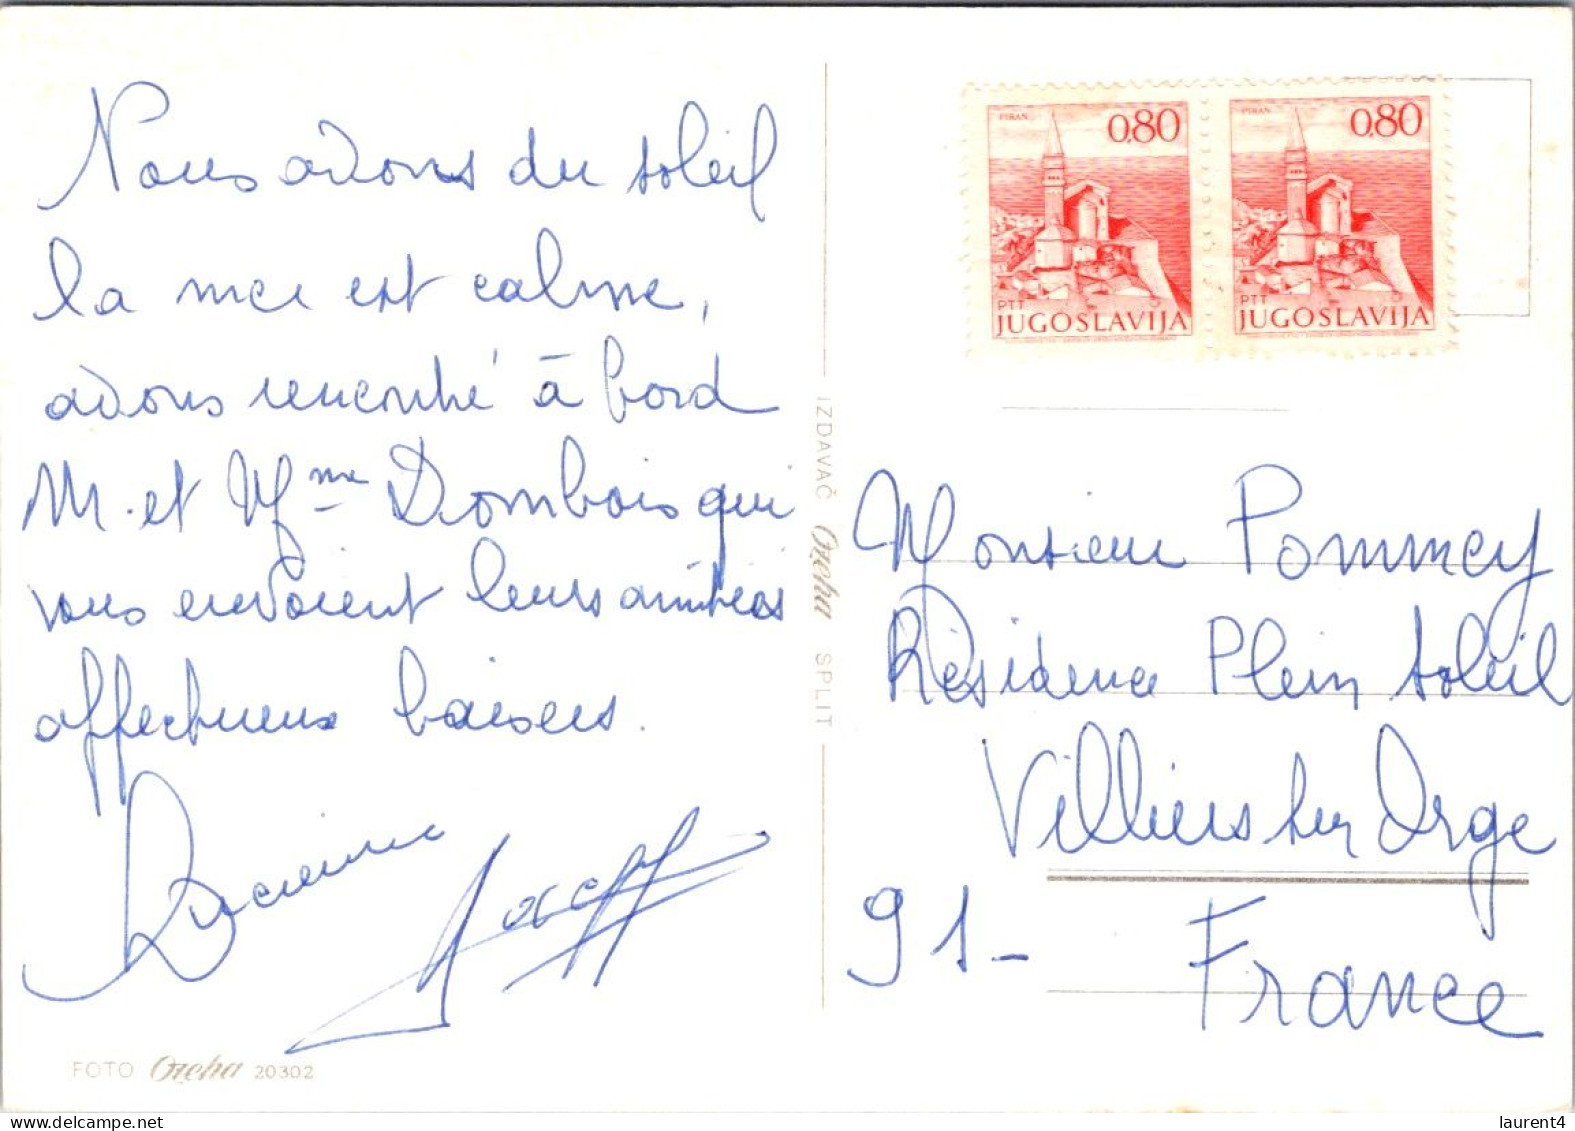 Nous avons du soleil
la mer est calme,
avons rencontré à bord
M. et Mme Dombois qui
vous envoient leurs amitiés
affectueux baisers.
Lucienne
FOTO Ozeha 20302
IZDAVAČ Ozeha SPLIT
PIRAN
0,80
PTT
JUGOSLAVIJA
PIRAN
0,80
PTT
JUGOSLAVIJA
Monsieur Pommey
Résidence Plein Soleil
Villiers sur Orge
91-
France
laurent4